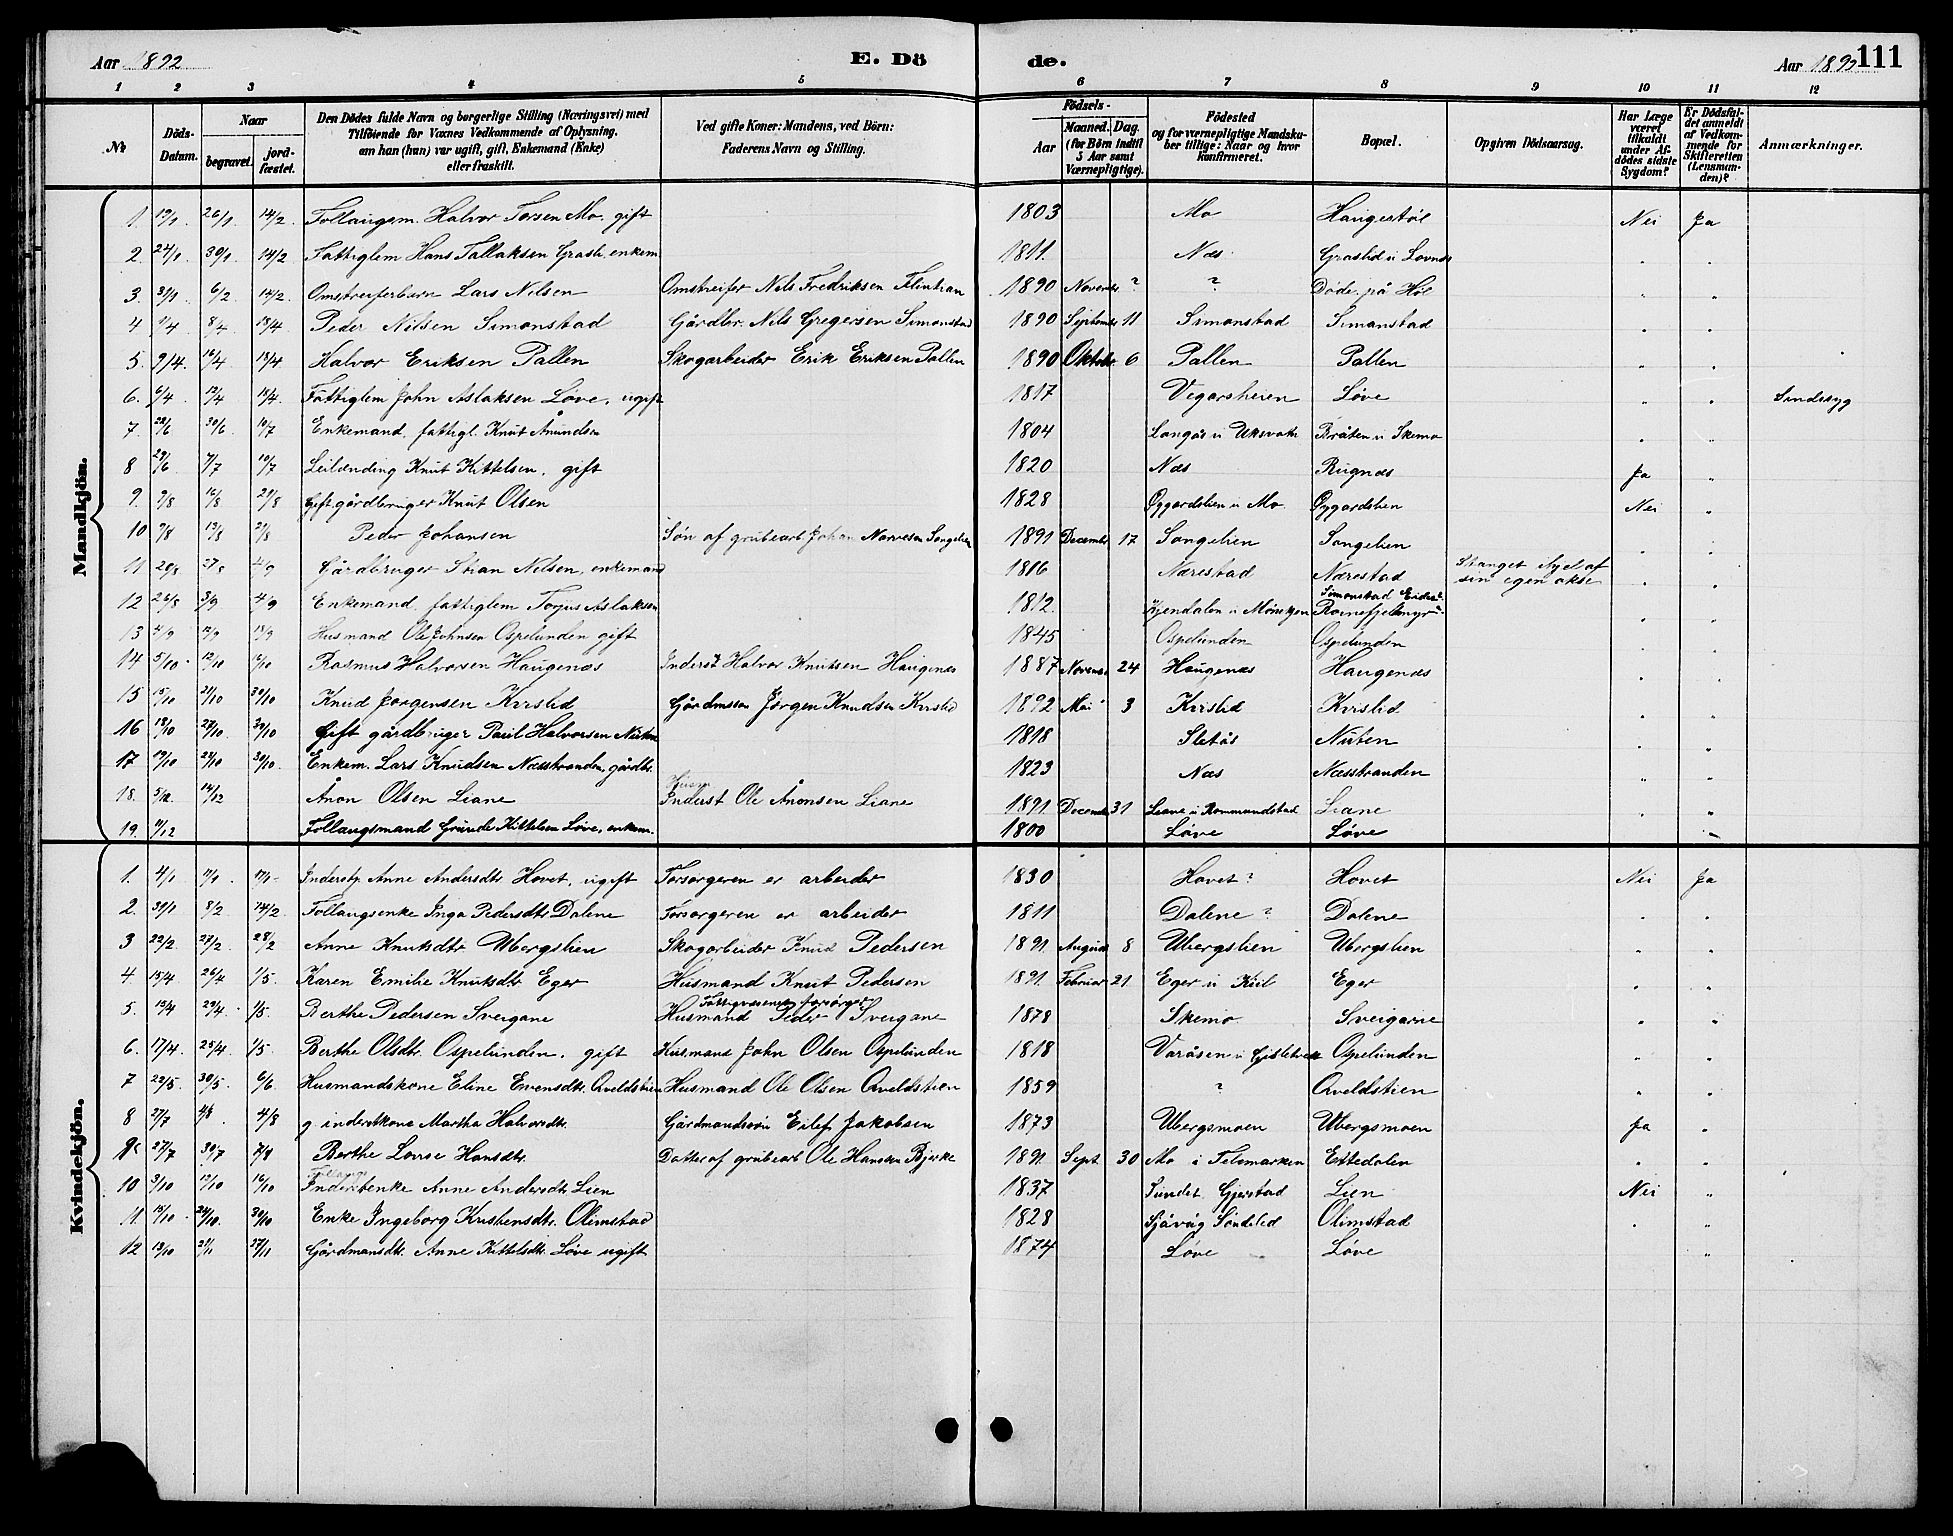 Aar 1892 E. Dö de. Aar 1892 111
1 2 3 4 5 6 7 8 9 10 11 12
№ Döds-Datum. Naar begravet. jord-fæstet. Den Dödes fulde Navn og borgerlige Stilling (Næringsvei) med Tilföiende for Voxnes Vedkommende af Oplysning, om han (hun) var ugift, gift, Enkemand (Enke) eller fraskilt. Ved gifte Koner: Mandens, ved Börn: Faderens Navn og Stilling. Födsels- Aar Maaned. Dag. (for Börn indtil 5 Aar samt Værnepligtige). Födested og for værnepligtige Mandskaber tillige: Naar og hvor konfirmeret. Bopæl. Opgiven Dödsaarsag. Har Læge været tilkaldt under Afdödes sidste Sygdom? Er Dödsfaldet anmeldt af Vedkommende for Skifteretten (Lensmanden)? Anmærkninger.
Mandkjön.
1. 19/1 26/1 14/2 Follaugsm. Halvor Torsen Mo. gift 1803 Mo Haugestøl Nei Ja
2. 24/1 30/1 14/2 Fattiglem Hans Tallaksen Grasli, enkem 1811. Næs Graslid i Lovnes " "
3. 31/1 6/2 14/2. Omstreiferbarn Lars Nilsen Omstreifer Nils Fredriksen 1890 Novembr ? ? Døde på Høl " "
4 1/4 8/4 18/4 Peder Nilsen Simonstad Gårdbr. Nils Gregersen Simonstad 1890 Septembr 11 Simonstad Simonstad " "
5. 9/4. 16/4 18/4 Halvor Eriksen Pallen Skogarbeider Erik Eriksen Pallen 1890 Oktobr 6 Pallen Pallen " "
6. 6/4 12/4 18/4. Fattiglem John Aslaksen Løve, ugift 1817 Vegarsheien Løve " " Sindssyg
7. 22/6 30/6. 10/7 Enkemand, fattigl. Knut Anundsen 1804 Langås i Uksvatn Bråten i Skemo " "
8 29/6 7/7 10/7 Leilænding Knut Kittelsen. gift 1820 Næs Rugnæs Ja "
9. 9/8 16/8 29/8 Gift gårdbruger Knut Olsen 1828 Øygardslien i Mo Øygardslien Nei "
10 9/8 13/8 21/8 Peder Johansen Søn af grubearb Johan Narvesen Songelien 1891 Decembr 17 Songelien Songelien " "
11 20/8 27/8 4/9 Gårdbruger Stian Nilsen, enkemand 1816 Nærestad Nærestad Stanget ihjel af sin egen okse " "
12 26/8 3/9 4/9 Enkemand fattiglem Torjus Aslaksen 1812. Simonstad " "
13 4/9 12/9 18/9 Husmand Ole Johnsen Ospelunden gift 1845 Ospelunden Ospelunden " "
14 5/10. 12/10 16/10 Rasmus Halvorsen Haugenæs Inderst Halvor Knutsen Haugenæs 1887 Novembr 24 Haugenæs Haugenæs " "
15 15/10 21/10 30/10 Knud Jørgensen Kvislid Gårdmssøn Jørgen Knudsen Kvislid 1892 Mai 3 Kvislid Kvislid " "
16 18/10 27/10. 30/10 Gift gårdbruger Paul Halvorsen Nuten 1818 Sletås Nuten " "
17 19/10 28/10 30/10. Enkem. Lars Knudsen Næsstranden, gårdbr. 1823 Næs Næsstranden " "
18. 5/12. 14/12 Ånon Olsen Liane Inderst Ole Ånonsen Liane 1891. Decembr 31 Liane i Rommundstad Liane " "
19. 9/12 Follaugsmand Grunde Kittelsen Løve, enkem. 1800 Løve Løve "
Kvindekjön.
1. 4/1 11/1. 17/1 Inderstp. Anne Andersdtr Hovet, ugift Forsørgeren er arbeider 1830 Hovet? Hovet Nei Ja
2. 30/1 8/2 14/2. Follaugsenke Inga Pedersdtr Dalene Forsørgeren er arbeider 1811 Dalene ? Dalene " "
3 22/2. 27/2. 28/2 Anne Knutsdtr Ubergslien Skogarbeider Knud Pedersen 1891 August 8 Ubergslien Ubergslien " "
4. 15/4 26/4 1/5. Karen Emilie Knutsdtr Eger Husmand Knut Pedersen 1891. Februar 21 Eger i Kiil Eger " "
5. 19/4 29/4. 1/5. Berthe Pedersen Sveigane Fattigvæsenet forsørger Husmand Peder Sveigane 1878 Skemo. Sveigarne " "
6. 17/4. 25/4. 1/5. Berthe Olsdtr. Ospelunden. gift Husmand John Olsen Ospelunden 1818 Varåsen i Ospelunden " "
7 22/5. 30/5. 6/6. Husmandskone Eline Evensdtr. Qveldstien Husmand Ole Olsen Qveldstien 1859 ? Qveldstien " "
8 27/7 4/8. 4/8 g inderstkone Martha Halvorsdtr. Gårdmandssøn Eilef Jakobsen 1873 Ubergsmoen Ubergsmoen Ja "
9 27/7 30/7 7/8 Berthe Lovise Hansdtr. Datter af grubearb Ole Hansen Bjerke 1891. Sept 30 Mo i Telemarken Ettedalen " "
10 3/10 12/10 16/10 Inderstenke Anne Andersdtr Lien 1837 Sundet Gjerstad Lien Nei "
11. 15/10. 24/10. 30/10 Enke Ingeborg Kristensdtr. Olimstad 1828 Sjåvåg Søndeled Olimstad " "
12 13/10 21/11 27/11 Gårdmansdtr. Anne Kittelsdtr. Løve ugift 1874 Løve Løve "